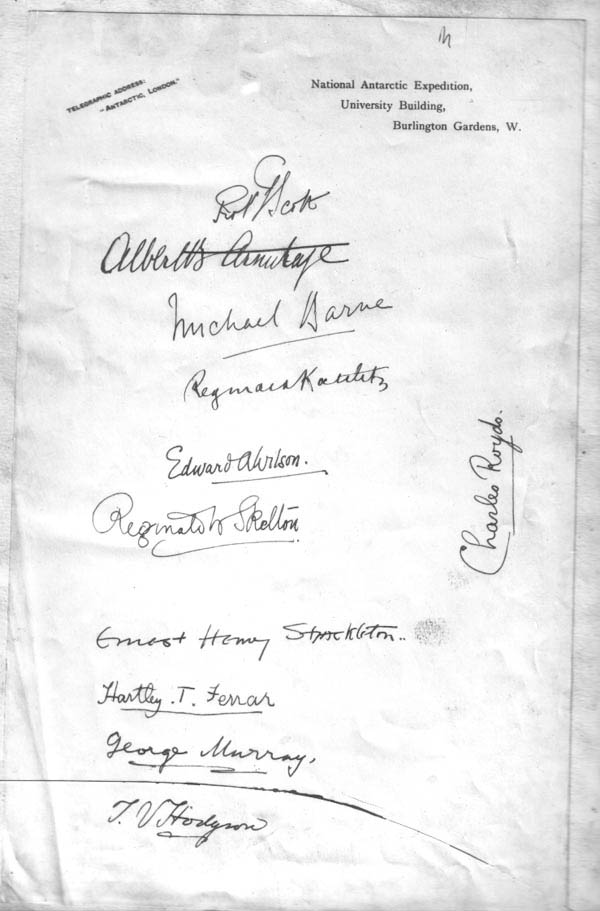 TELEGRAPHIC ADDRESS:
"ANTARCTIC, LONDON."
National Antarctic Expedition,
University Building,
Burlington Gardens, W.
Robt F Scott
Albert B Armitage
Michael Barne
Reginald Koettlitz
Edward A Wilson.
Charles Royds.
Reginald W Skelton
Ernest Henry Shackleton..
Hartley . T. Ferrar
George Murray.
T. V. Hodgson